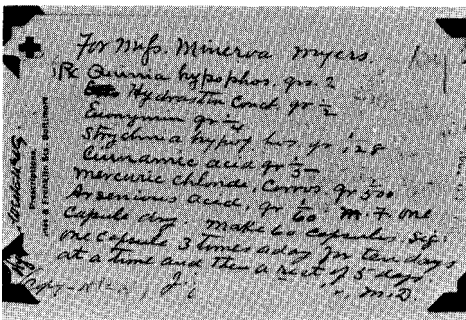 For Miss. Minerva Myers.
Rx Quinia hypophos. grs. 2
Hydrastin Conct gr 1/2
Euonymin gr 1/4
Strychnia hypophos gr 1/28
Cinnamic acid gr 1/5
Mercuric chloride, Corros, gr 1/500
Arsenious acid, gr 1/60. M. F. one
capsule dry make 60 capsules. Sig
one capsule 3 times a day for ten days
at a time and then a rest, of 5 days.
M.D.
Copy-
Prescriptions,
Baltimore